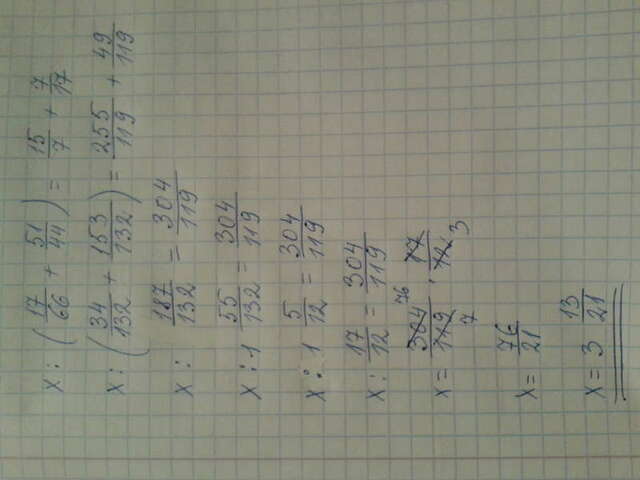 x : (17/66 + 51/44) = 15/7 + 7/17
x : (34/132 + 153/132) = 255/119 + 49/119
x : 187/132 = 304/119
x : 1 55/132 = 304/119
x : 1 5/12 = 304/119
x : 17/12 = 304/119
x = 304 76/119 7 · 17/12 3
x = 76/21
x = 3 13/21